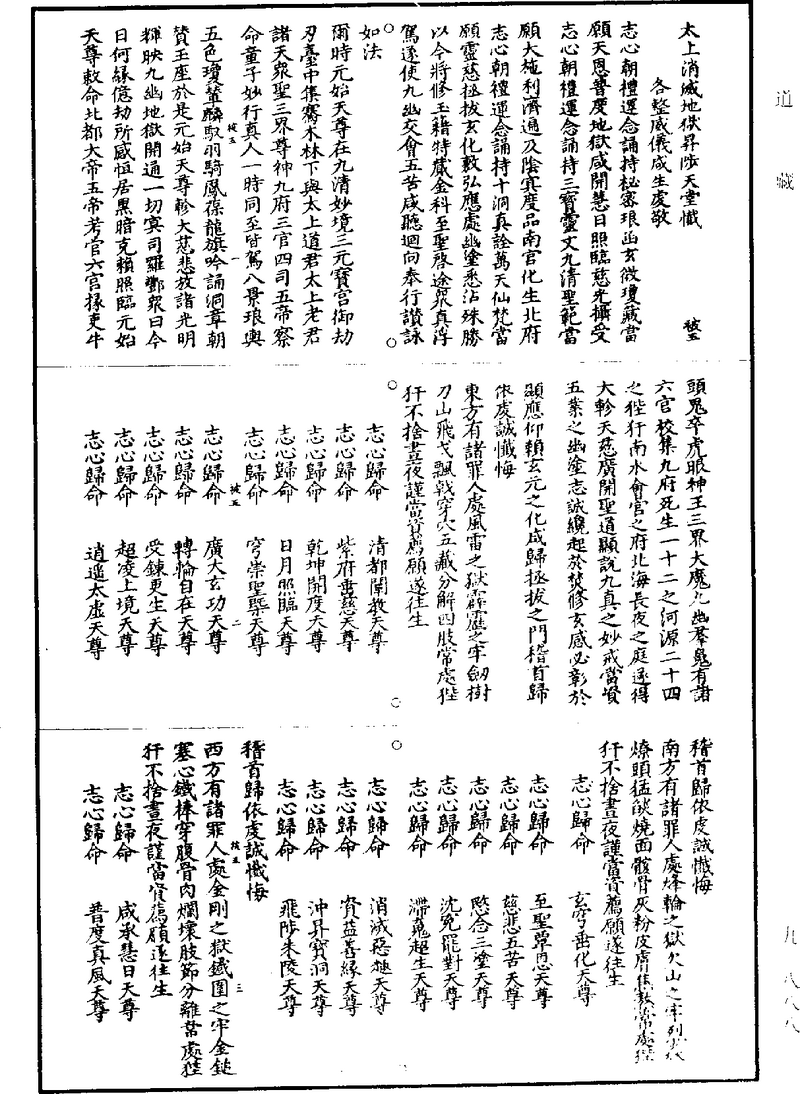 道藏
太上消滅地獄昇陟天堂懺
被五
各整威儀咸生虔敬
志心朝禮運念誦持秘密琅函玄微瓊藏當
願天恩普度地獄咸開慧日照臨慈光攝受
志心朝禮運念誦持三寶靈文九清聖範當
願大施利濟遍及陰冥度品南宮化生北府
志心朝禮運念誦持十洞真詮萬天仙梵當
願靈慈拯拔玄化敷弘應處幽塗悉沾殊勝
以今將修玉籍特葳金科至聖啓途眾真浮
駕遂使九幽交會五苦咸聽迴向奉行讚詠
如法
爾時元始天尊在九清妙境三元寶宮御劫
刃臺中集騫木林下與太上道君太上老君
諸天眾聖三界尊神九府三官四司五帝察
命童子妙行真人一時同至皆駕八景琅輿
五色瓊輦麟馭羽騎鳳葆龍旗吟誦洞章朝
被五
一
贊王座於是元始天尊軫大慈悲放諸光明
輝映九幽地獄開通一切冥司羅酆眾曰今
日何緣億劫所感恒居黑暗克賴照臨元始
天尊敕命北都大帝五帝考官六宮掾吏牛
頭鬼卒虎眼神王三界大魔九幽羣鬼有諸
六宮校集九府死生一十二之河源二十四
之狴犴南水會官之府北海長夜之庭遂得
大軫天慈廣開聖道顯說九真之妙戒當資
五業之幽塗志誠纔起於焚修玄感必彰於
顯應仰賴玄元之化咸歸拯拔之門稽首歸
依虔誠懺悔
東方有諸罪人處風雷之獄霹靂之牢劒樹
刀山飛戈飄戟穿穴五藏分解四肢常處狴
犴不捨晝夜謹當資薦願遂往生
志心歸命　清都闡教天尊
志心歸命　紫府垂慈天尊
志心歸命　乾坤開度天尊
志心歸命　日月照臨天尊
志心歸命　穹崇聖槩天尊
被五
二
志心歸命　廣大玄功天尊
志心歸命　轉輪自在天尊
志心歸命　受鍊更生天尊
志心歸命　超凌上境天尊
志心歸命　逍遙太虛天尊
稽首歸依虔誠懺悔
南方有諸罪人處烽輪之獄火山之牢烈火
燎頭猛燄燒面骸骨灰粉皮膚焦散常處狴
犴不捨晝夜謹當資薦願遂往生
志心歸命　玄穹垂化天尊
志心歸命　至聖覃恩天尊
志心歸命　慈悲五苦天尊
志心歸命　愍念三塗天尊
志心歸命　沈冤罷對天尊
志心歸命　滯魂超生天尊
志心歸命　消滅惡趣天尊
志心歸命　資益善緣天尊
志心歸命　沖昇寶洞天尊
志心歸命　飛陟朱陵天尊
稽首歸依虔誠懺悔
被五
三
西方有諸罪人處金剛之獄鐵圍之牢金鎚
塞心鐵棒穿腹骨肉爛壞肢節分離常處狴
犴不捨晝夜謹當資薦願遂往生
志心歸命　咸承慧日天尊
志心歸命　普度真風天尊
九八八八